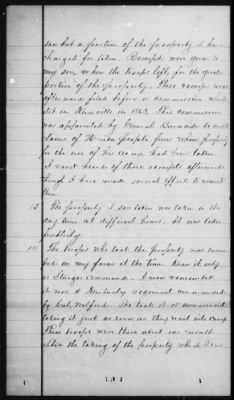 saw but a portion of the property I have
charged for taken. Receipts were given to
my son, when the troops left, for the greater
portion of the property. These receipts were
afterwards filed before a commission which
sat in Knoxville in 1863. This commission
was appointed by General Burnside to audit
claims of Union people from whom property
for the use of his army, had been taken.
I never heard of those receipts afterwards
though I have made several efforts to
them.
13. The property I saw taken was taken in the
day time at different hours. It was taken
publicly.
14. The troops who took the property were encamp
ed on my farm at the time. Knew it only
as Sturges command. I now remember
it was a Kentucky regiment commanded
by Col. Wolford. They took it or commenced
taking it just as soon as they went into camp.
These troops were there about one month
after the taking of the property which I saw